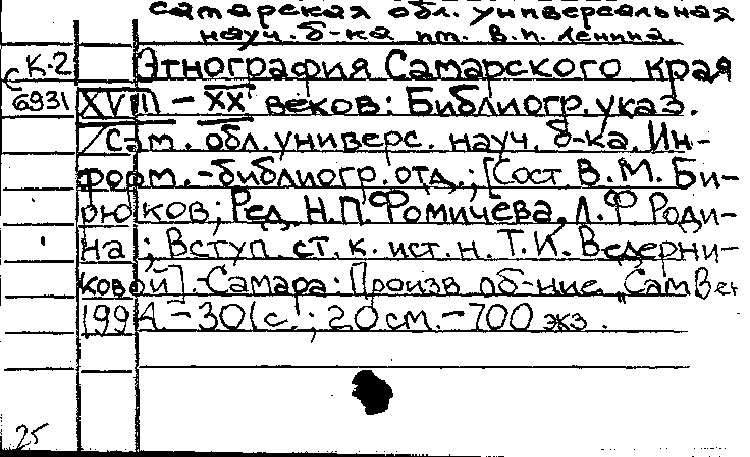 Самарская обл. универсальная
науч. б-ка им. В.И. Ленина.
К-2 Этнография Самарского края
С 6931 XVIII – XX веков: Библиогр. указ.
/Сам. обл. универс. науч. б-ка. Ин-
форм.-библиогр. отд.; [Сост. В.М. Би-
рюков; Ред. Н.П. Фомичёва, Л.Ф Роди-
на; Вступ. ст. к. ист. н. Т.И. Ведерни-
ковой]. -Самара: Произв об-ние „СамВен
1994. – 301с.; 20см. – 700 экз.
25